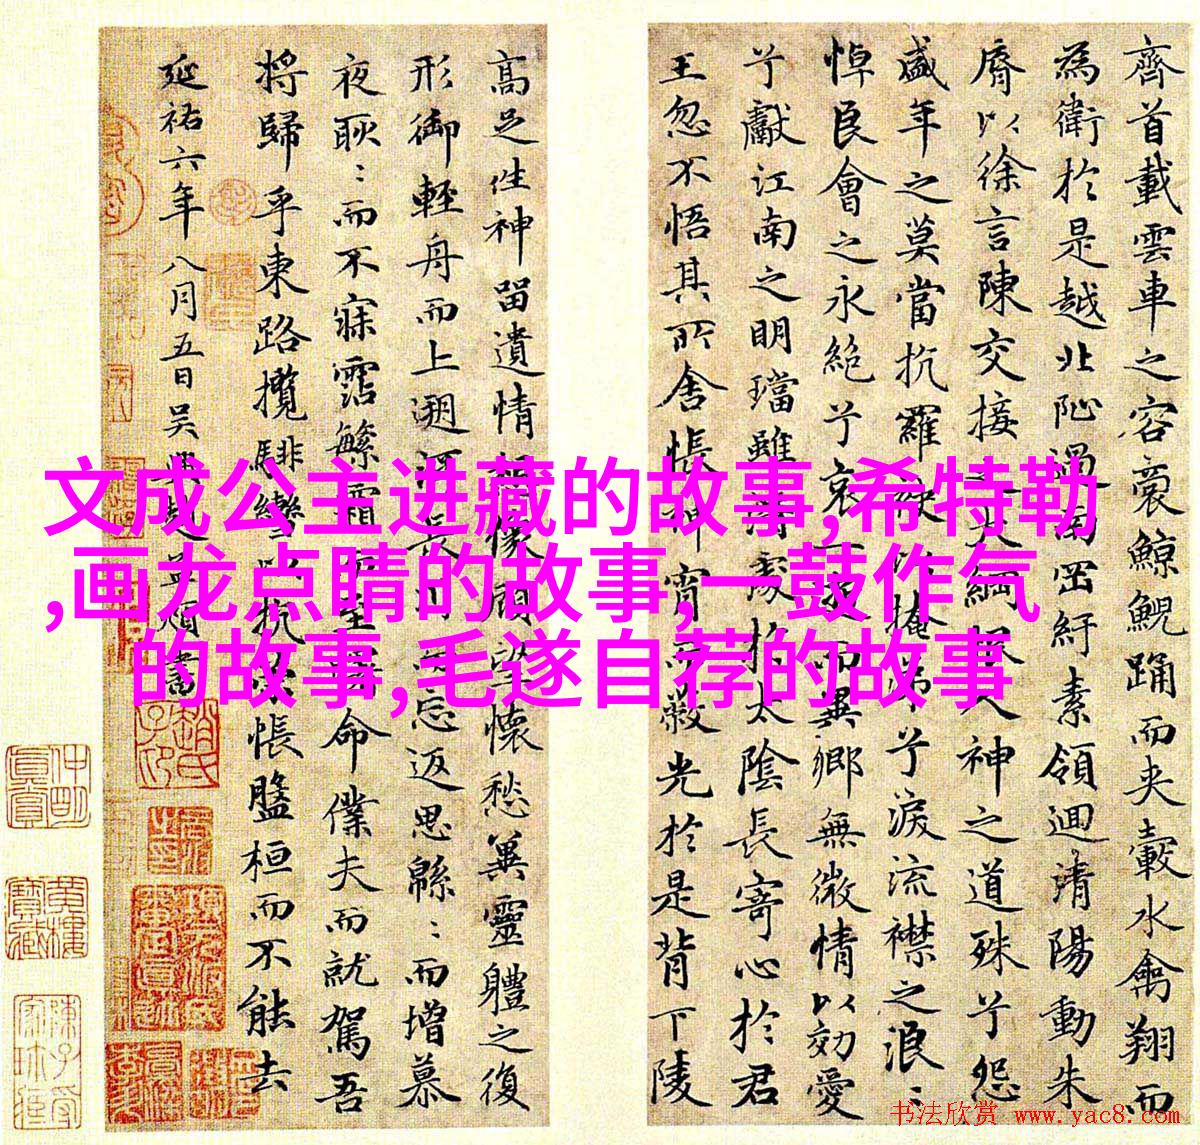 文成公主进藏的故事,希特勒
,画龙点睛的故事,一鼓作气
的故事,毛遂自荐的故事
齊首載雲車之容裔鯨鯢踊而夾轂水禽翔而
為衛於是越北沚過南岡紆素領迴清陽動朱
脣以徐言陳交接之大綱恨人神之道殊兮怨
盛年之莫當抗羅袂以掩涕兮淚流襟之浪〻
悼良會之永絕兮哀一逝而異鄉無微情以効愛
兮獻江南之明璫雖潛處於太陰長寄心於君
王忽不悟其所舍悵神宵而蔽光於是背下陵
高足往神留遺情想像顧望懷愁冀靈體之復
形御輕舟而上遡浮長川而忘返思緜〻而增慕
夜耿〻而不寐霑繁霜而至曙命僕夫而就駕吾
將歸乎東路攬騑轡以抗策悵盤桓而不能去
延祐六年八月五日吳興趙孟頫書
书法欣赏 www.yac8.com